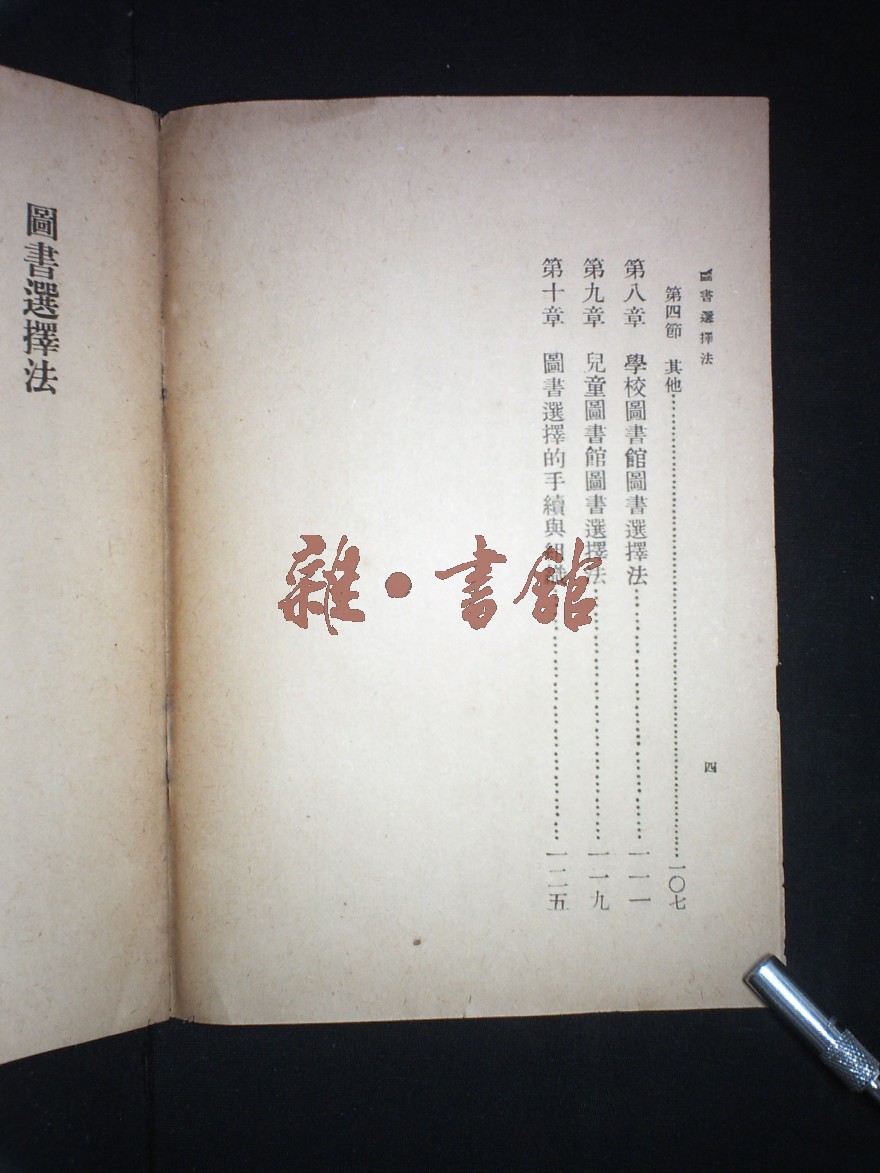 圖書選擇法
四
第四節 其他……一〇七
第八章 學校圖書館圖書選擇法……一一一
第九章 兒童圖書館圖書選擇法……一一九
第十章 圖書選擇的手續與組織……一二五
圖書選擇法
雜·書館